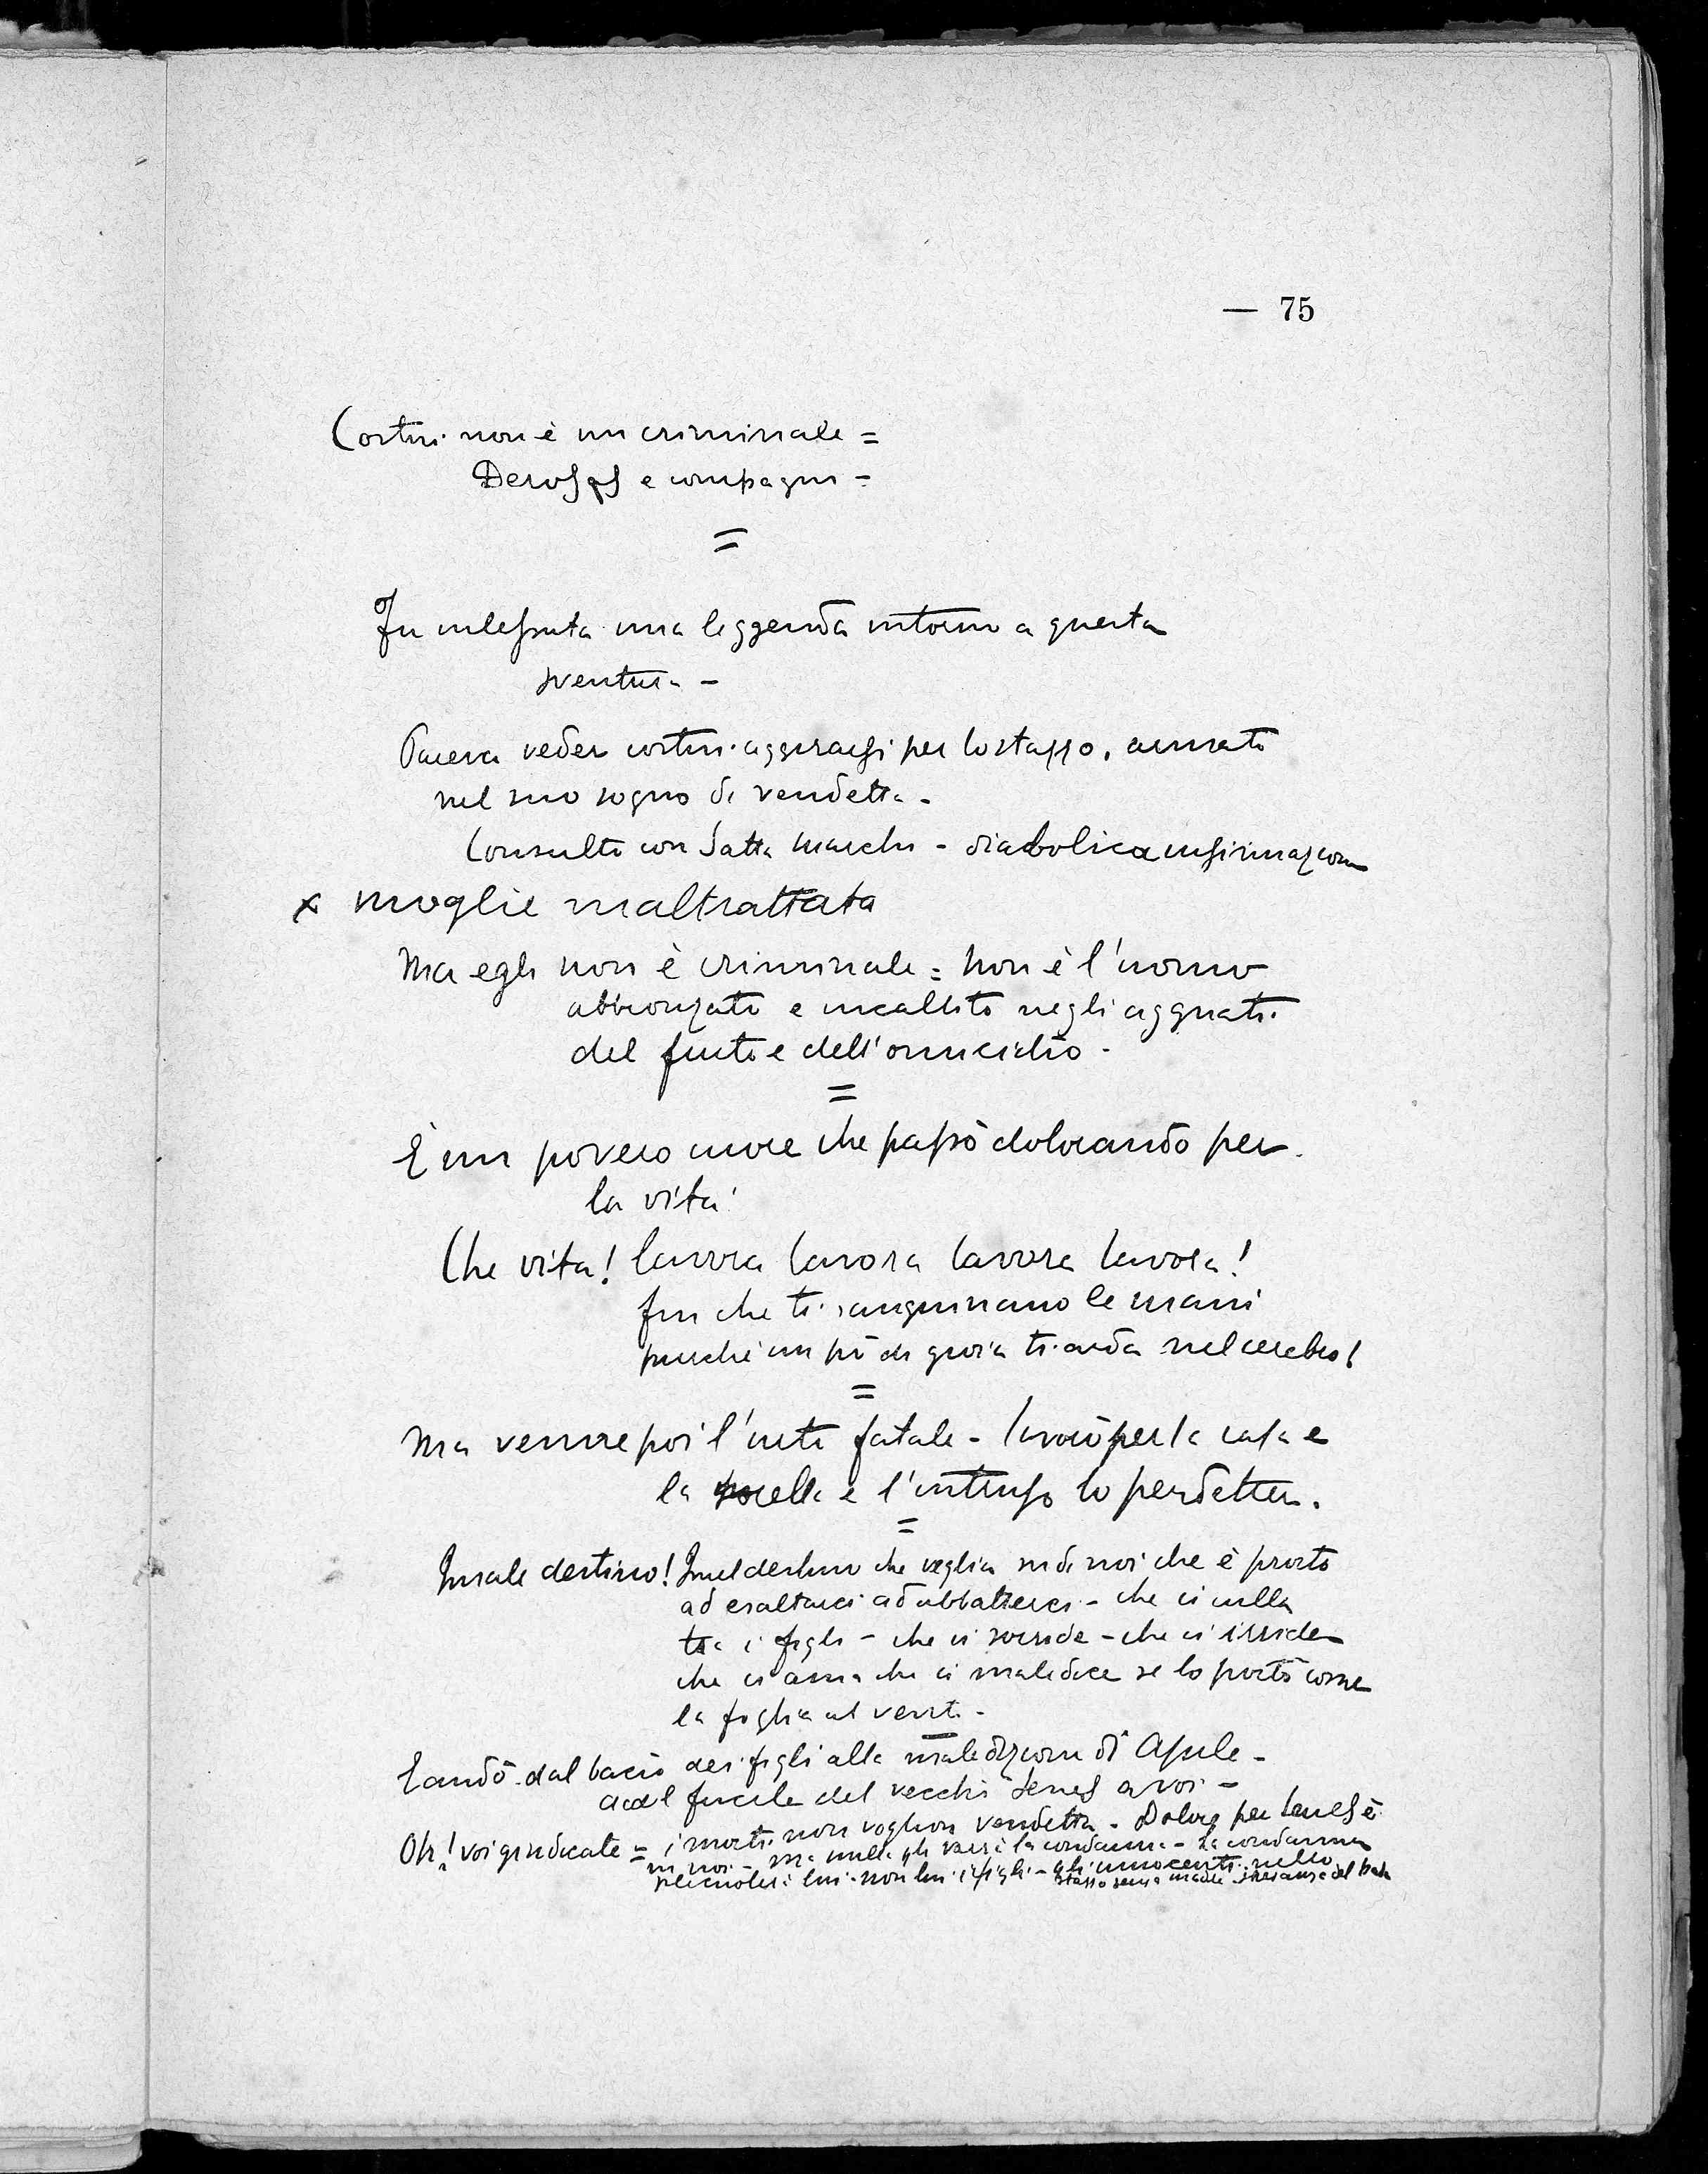 — 75
Costui non è un criminale =
Derosas e compagni =
=
Fu intessuta una leggenda intorno a questa
sventura -
Pareva veder costui aggirarsi per lo stazzo, armato
nel suo sogno di vendetta -
Consulto con Satta Marchi - diabolica insinuazione
x moglie maltrattata
Ma egli non è criminale = Non è l'uomo
abbronzato e incallito negli agguati
del furto e dell'omicidio -
=
È un povero cuore che passò dolorando per
la vita
Che vita! lavora lavora lavora lavora!
fin che ti sanguinano le mani
purchè un pò di gioia ti arda nel cerebro!
=
Ma venne poi l'urto fatale - lavorò per la casa e
la e l'intruso lo perdetter.
=
destino! destino che veglia su di noi che è pronto
ad esaltarci ad abbatterci - che ci culla
tra i figli - che ci sorride - che ci irride
che ci ama che ci maledice se lo portò come
la foglia al vento -
E andò dal bacio dei figli alla maledizione di
al fucile del vecchio a voi -
Oh! voi giudicate = i morti non voglion vendetta - per è
in noi - ma nulla gli la condanna - La condanna
lui - non lui i figli - gli innocenti nello
stazzo senza madre speranza del